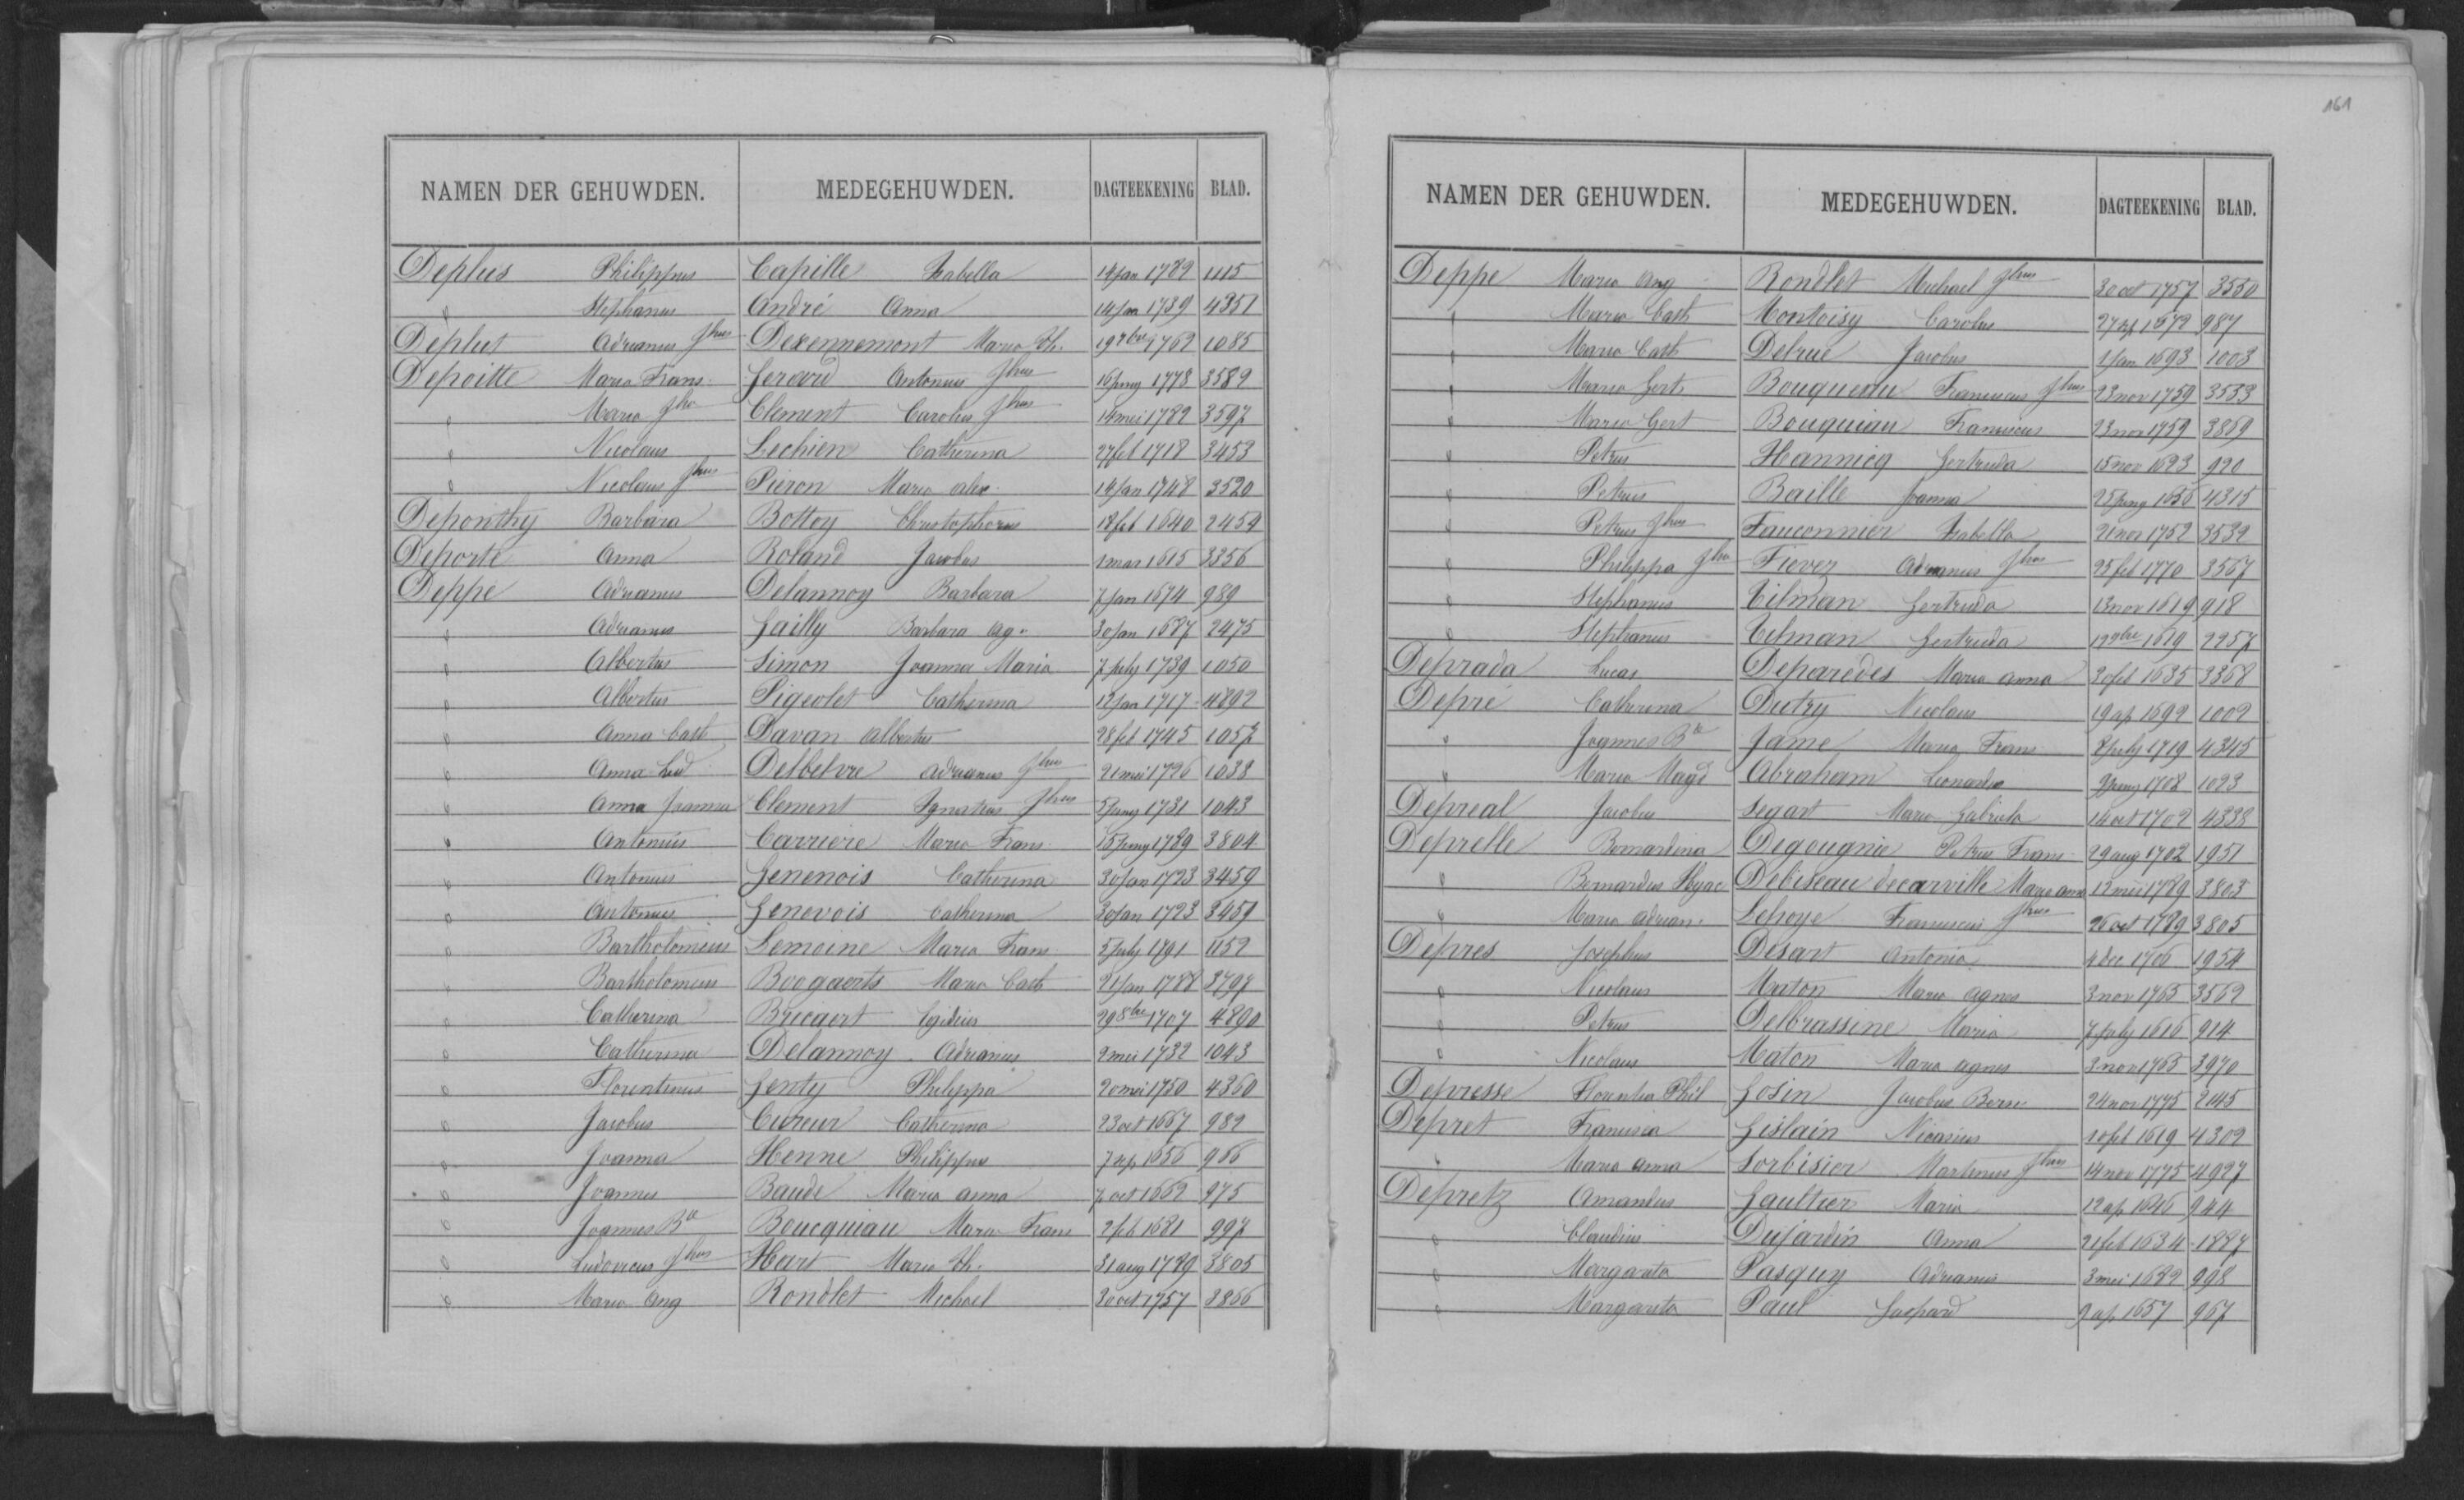 161
NAMEN DER GEHUWDEN. MEDEGEHUWDEN. DAGTEEKENING BLAD.
Deplus Philippus Capille Isabella 14 jan 1789 1115
" Stephanus André Anna 14 jan 1739 4351
Deplut Adrianus Jhus Dexennemont Maria Th. 19 7bre 1762 1085
Depoitte Maria Frans. Gerard Antonius Jhus 16 juny 1778 3589
" Maria Jha Clement Carolus Jhus 14 mei 1782 3597
" Nicolaus Lechien Catherina 27 feb 1718 3453
" Nicolaus Jhus Pieron Maria alex. 14 jan 1748 3520
Deponthy Barbara Bottoy Christophorus 18 feb 1640 2454
Deporte Anna Roland Jacobus 1 mar 1615 3356
Deppe Adrianus Delannoy Barbara 7 jan 1674 989
" Adrianus Gailly Barbara Ag. 30 jan 1687 2475
" Albertus Simon Joanna Maria 7 july 1739 1050
" Albertus Pigeolet Catherina 12 jan 1717 4892
" Anna Cath Davan Albertus 28 feb 1745 1057
" Anna Lud Delbelvre Adrianus Jhus 21 mei 1726 1038
" Anna Joanna Clement Ignatius Jhus 5 juny 1731 1043
" Antonius Carriere Maria Frans. 15 juny 1789 3804
" Antonius Genenois Catherina 30 jan 1723 3459
" Antonius Genevois Catherina 30 jan 1723 3459
" Bartholomeus Lemoine Maria Frans. 5 july 1791 1152
" Bartholomeus Boogaerts Maria Cath 21 jan 1788 3797
" Catherina Bricaert Egidius 29 8bre 1707 4890
" Catherina Delannoy Adrianus 2 mei 1732 1043
" Florentinus Genty Philippa 20 mei 1750 4360
" Jacobus Cureur Catherina 23 oct 1667 982
" Joanna Henne Philippus 7 sep 1656 966
" Joannes Baude Maria anna 7 oct 1662 975
" Joannes Bte Boucquiau Maria Frans 2 feb 1681 997
" Ludovicus Jhus Hart Maria Th. 31 aug 1789 3805
" Maria Ang Rondlet Michael 30 oct 1757 3866
NAMEN DER GEHUWDEN. MEDEGEHUWDEN. DAGTEEKENING BLAD.
Deppe Maria Ang Rondlet Michael Jhus 30 oct 1757 3550
" Maria Cath Montoisy Carolus 27 sep 1672 987
" Maria Cath Delrue Jacobus 1 jan 1693 1003
" Maria Gert. Bouqueau Franciscus Jhus 23 nov 1759 3553
" Maria Gert Bouquiau Franciscus 23 nov 1759 3869
" Petrus Hannicq Gertruda 15 nov 1623 920
" Petrus Baille Joanna 25 juny 1656 4315
" Petrus Jhus Fauconnier Isabella 21 nov 1752 3532
" Philippa Jha Fiover Adrianus Jhus 25 feb 1770 3567
" Stephanus Tilman Gertruda 13 nov 1619 918
" Stephanus Tilman Gertruda 12 9bre 1619 2257
Deprada Lucas Deparedes Maria anna 3 feb 1635 3368
Depré Catherina Dutry Nicolaus 19 ap 1692 1002
" Joannes Bte Jame Maria Frans. 8 july 1719 4345
" Maria Magd Abraham Leonardus juny 1708 1023
Depreal Jacobus Segart Maria Gabriela 14 oct 1702 4338
Deprelle Bernardina Degougnie Petrus Frans. 29 aug 1702 1951
" Bernardus Hyac Debiseau decarville Maria anna 12 mei 1789 3803
" Maria Adrian. Lehoye Franciscus Jhus 26 oct 1789 3805
Depres Josephus Desart Antonia 4 dec 1706 1954
" Nicolaus Maton Maria Agnes 3 nov 1765 3562
" Petrus Delbrassine Maria 7 july 1616 914
" Nicolaus Maton Maria Agnes 3 nov 1765 3970
Depresse Florentia Phil Gosin Jacobus Bern. 24 nov 1775 2145
Depret Francisca Gislain Nicasius 10 feb 1619 4302
" Maria anna Sorbisier Martinus Jhus 14 nov 1775 4927
Depretz Amandus Gaultier Maria 12 ap 1646 944
" Claudius Dujardin Anna 21 feb 1634 1887
" Margarita Pasquy Adrianus 3 mei 1682 998
" Margarita Paul Gaspard 9 ap 1657 967